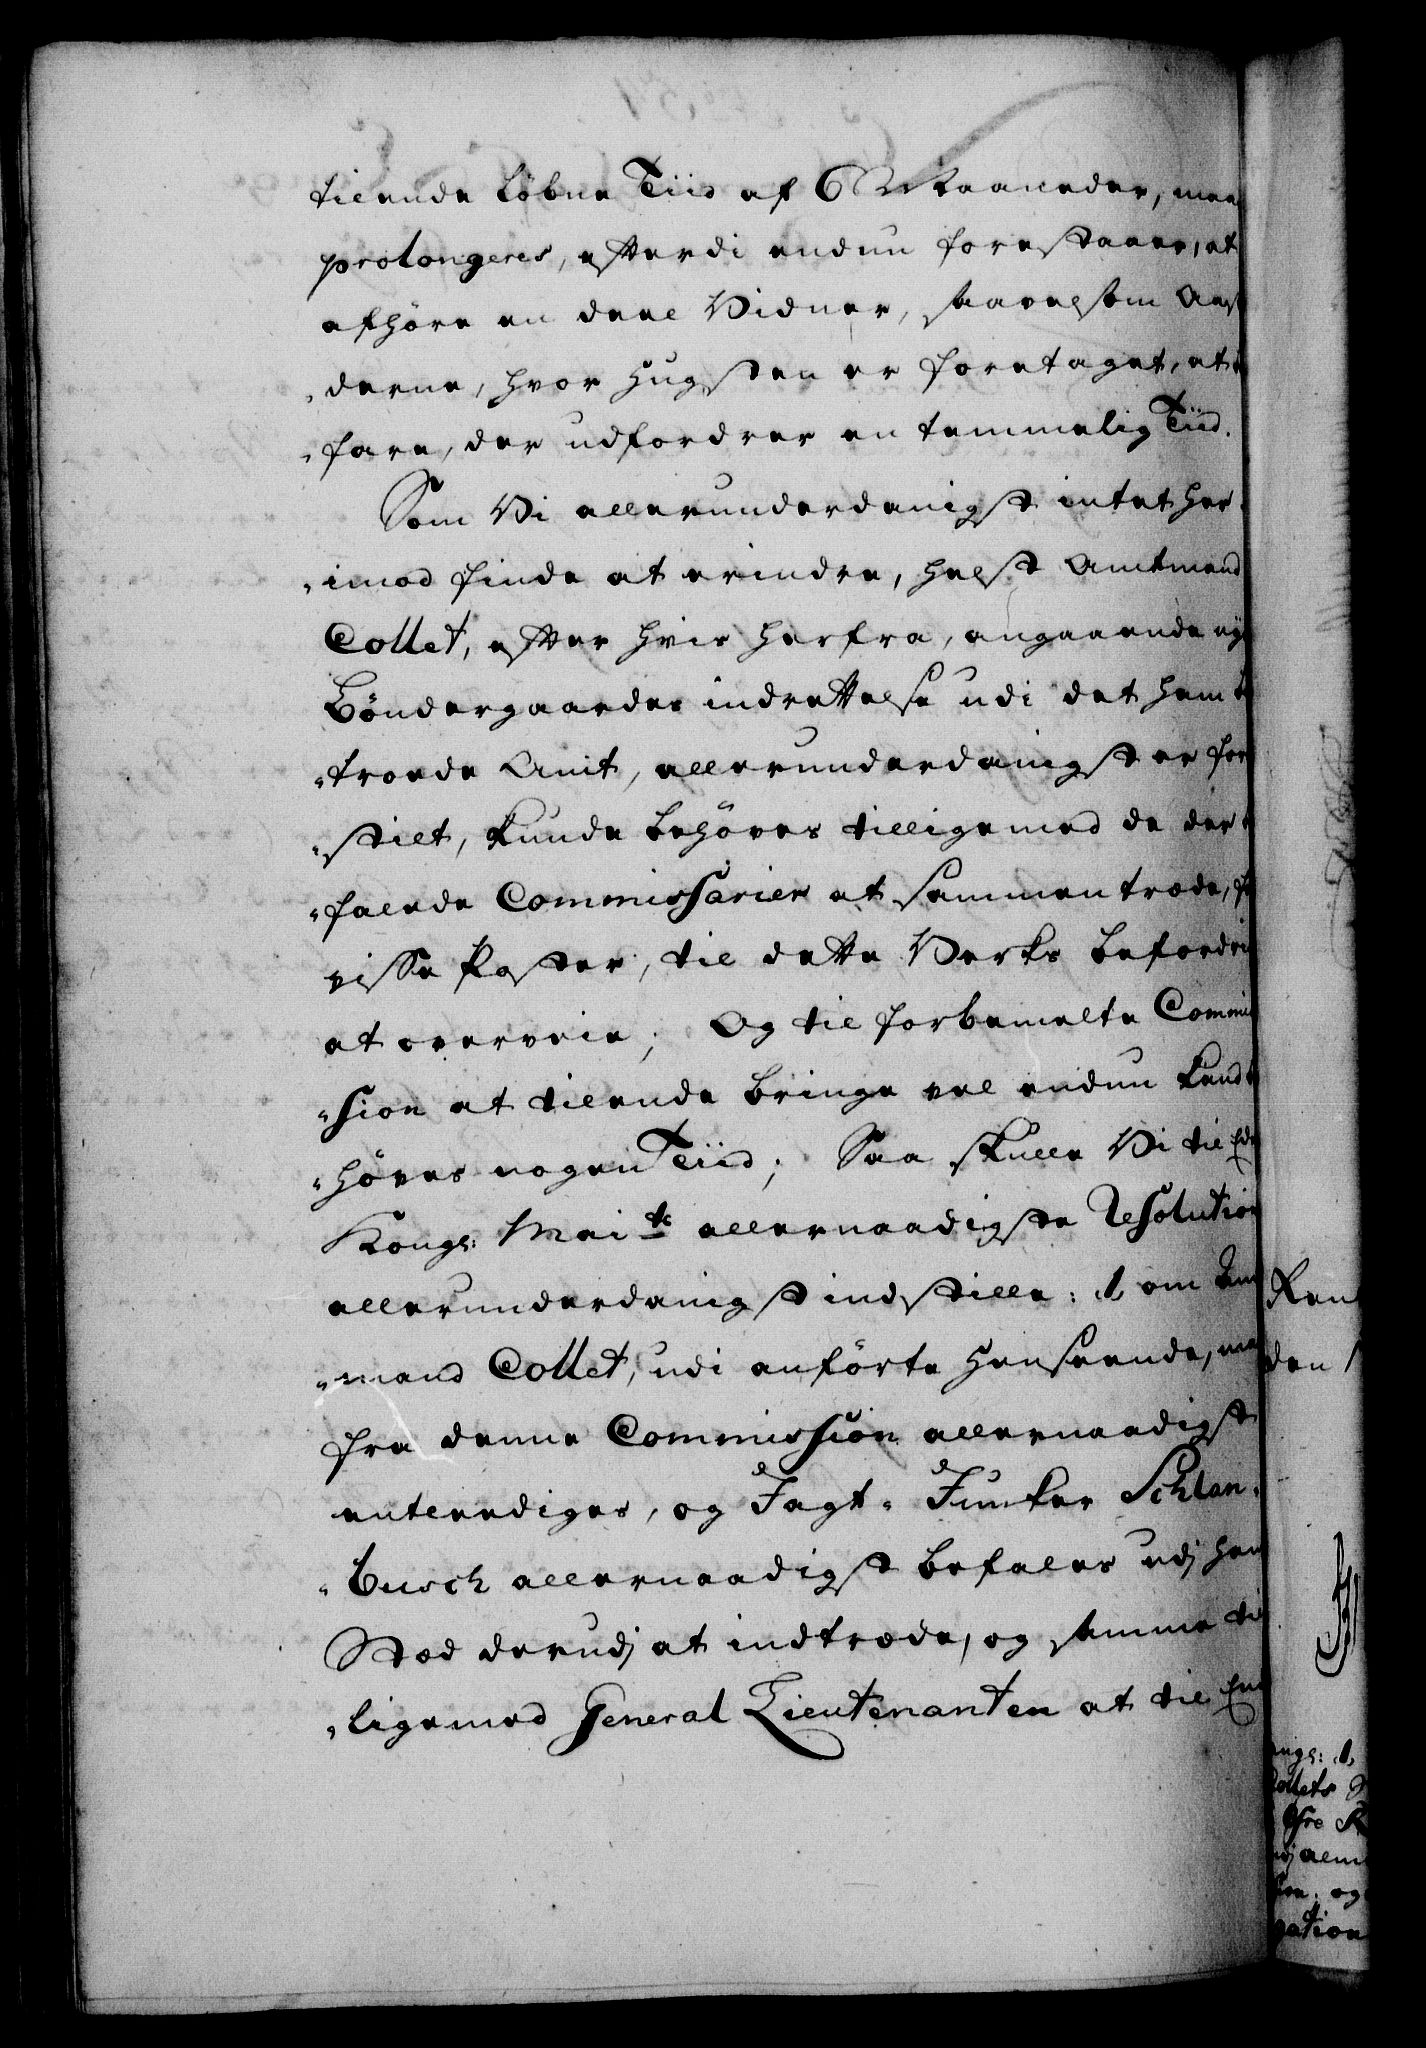 tilende løbne Tiid af 6 Maaneder, maa
prolongeres, efterdi endnu forestaaer, at
afhøre en deel Vidner, saavelsom
derne, hvor Hugsten er foretaget, at
fare, der udfordrer en temmelig Tiid.
Som Vi allerunderdanigst intet her
imod finde at erindre, helst Amtmand
Collet, efter hvis herfra, angaaende nye
Bøndergaardes indrettelse udi det ham be
troede Amt, allerunderdanigst er fore
stilt, kunde behøves tilligemed de dertil
falede Commissarier at sammentræde, for
visse Poster, til dette Verks befordring
at overveie; Og til forbemelte Commis
sion at tilende bringe vel endnu kand be
høves nogen Tiid; Saa skulle Vi til Eders
Kongl: Mai.ts allernaadigste Resolution
allerunderdanigst indstille: 1, om Amt
mand Collet, udi anførte Henseende, maa
fra denne Commission allernaadigst
entlediges, og Jagt-Junker Schlan-
busch allernaadigst befales udj hans
Stæd derudj at indtræde, og samme til
ligemed General Lieutenanten at til Ende